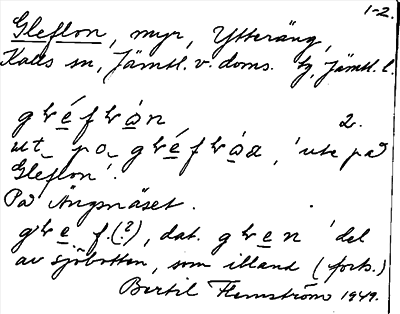 1-2.
Gleflon, myr, Ytteräng,
Kalls sn, Jämtl. v. doms. tg, Jämtl. l.
2.
ut_ po_ 'ute på
Gleflon'.
På Ängsnäset.
f.(?), dat. 'del
av sjöbotten, som illand (forts.)
Bertil Flemström 1949.